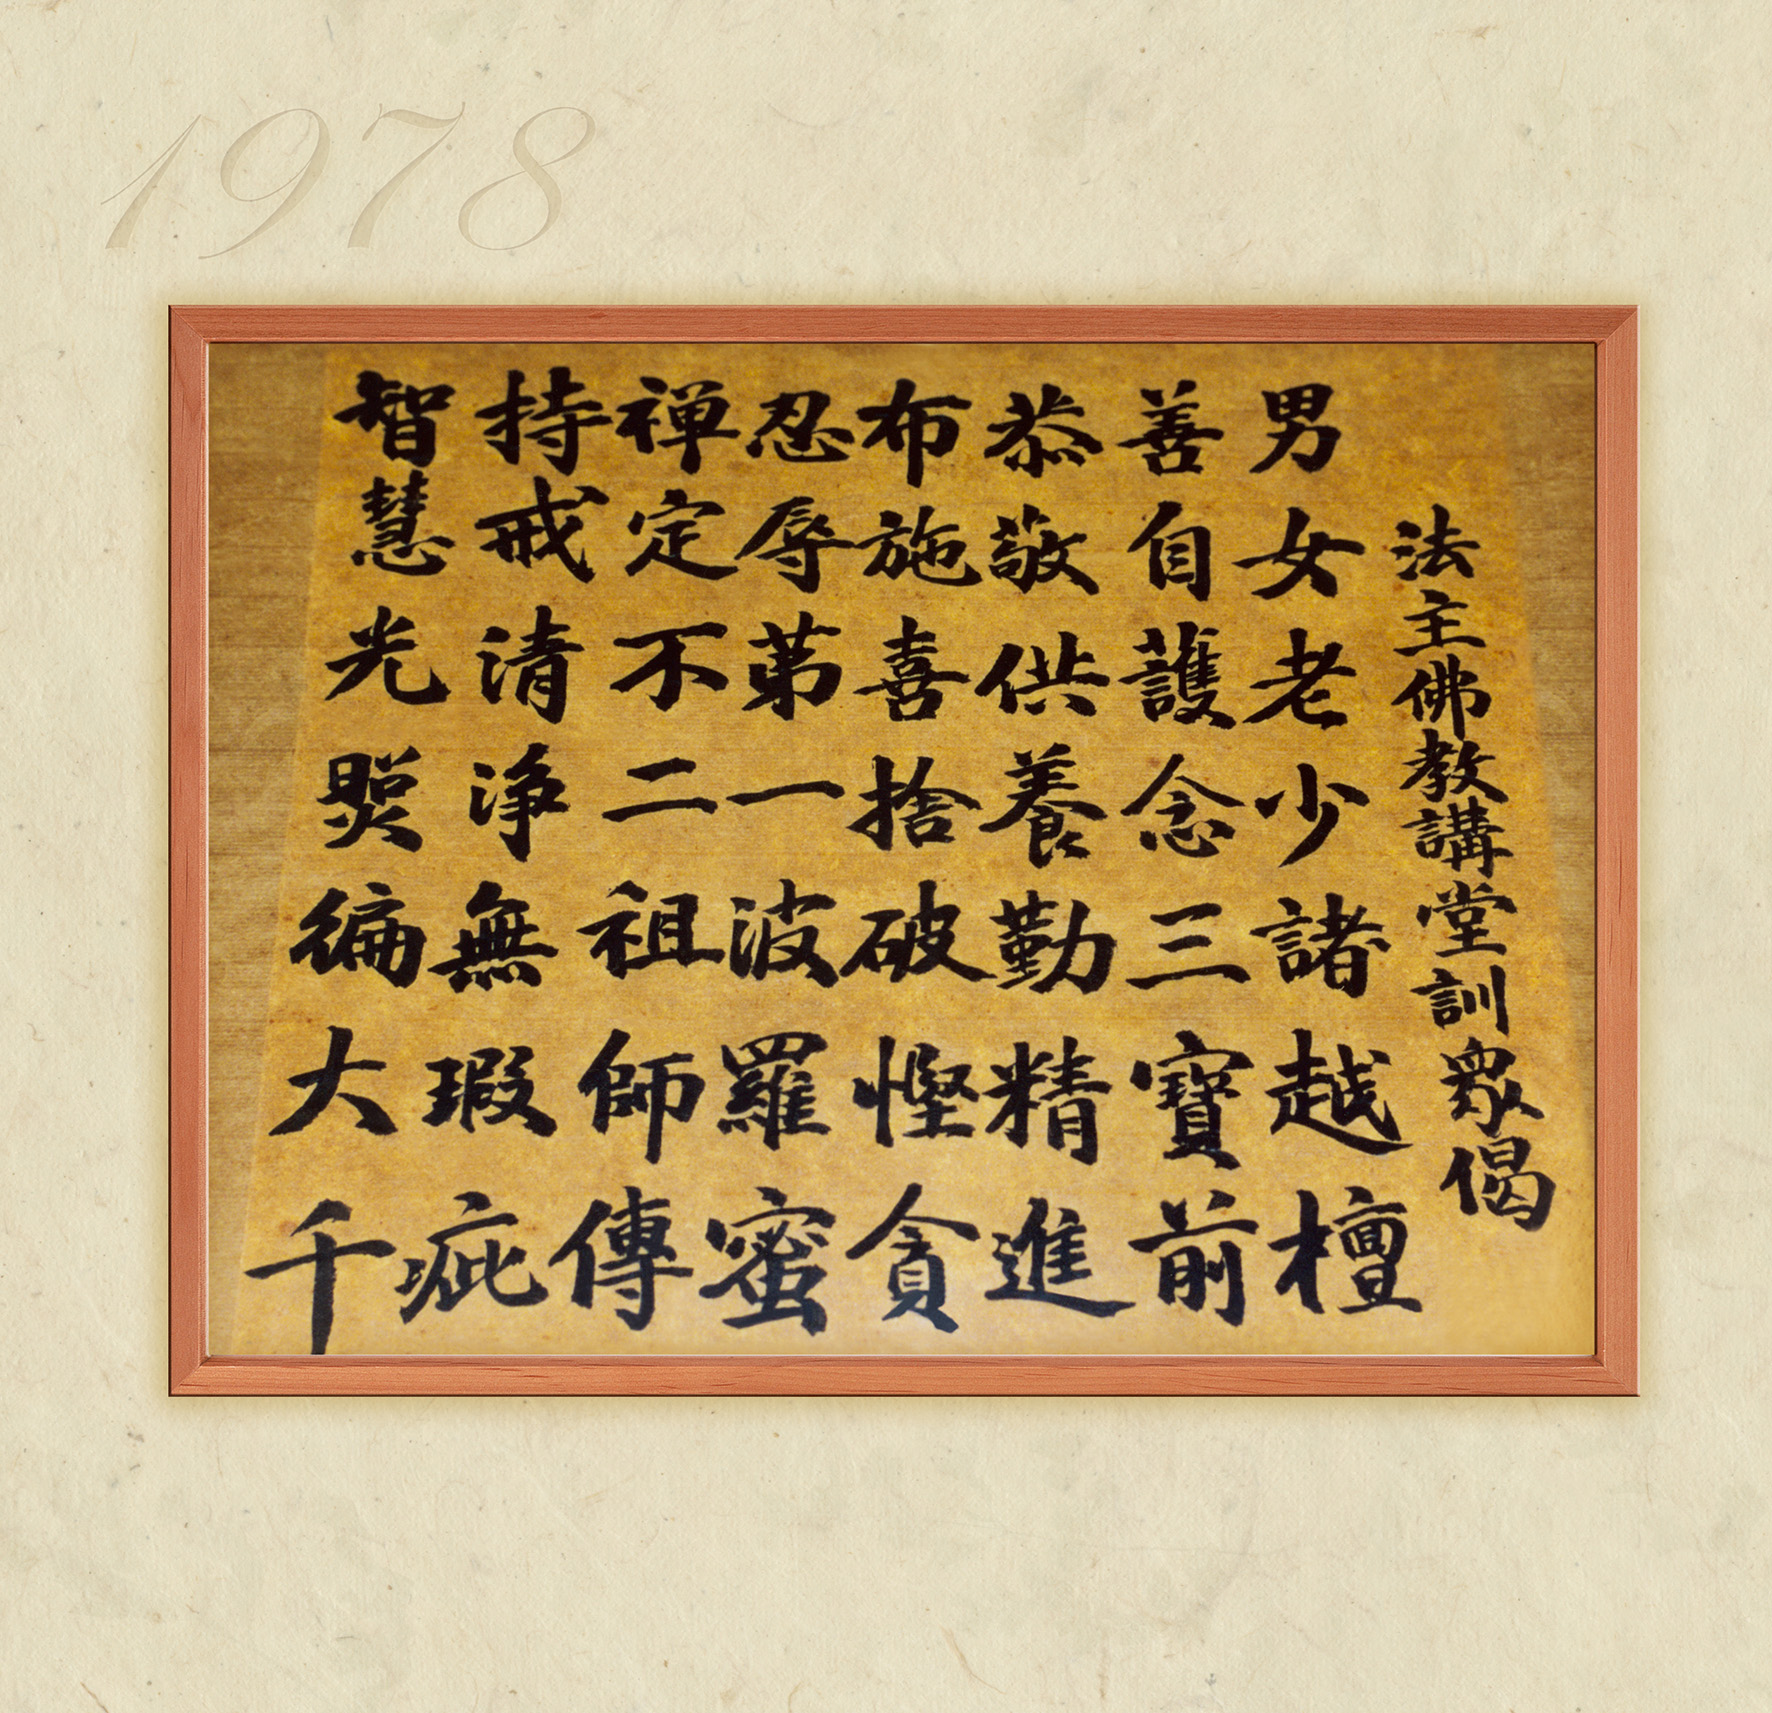 1978
法主佛教講堂訓眾偈
男女老少諸越檀
善自護念三寶前
恭敬供養勤精進
布施喜捨破慳貪
忍辱第一波羅蜜
禅定不二祖師傳
持戒清淨無瑕疵
智慧光照徧大千